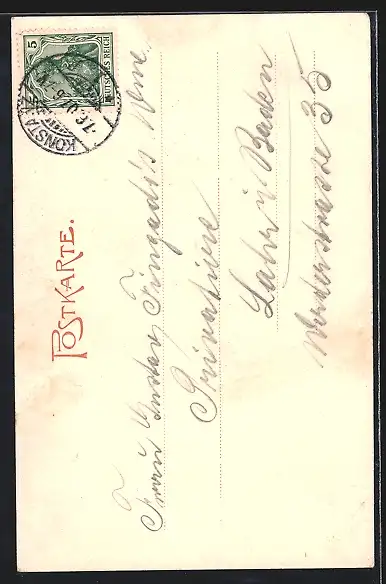 5
DEUTSCHES REICH
KONSTA
POSTKARTE.
Frau Gustav Fingado's Wwe.
Privatiere
Lahr i/ Baden
Werderstrasse 35